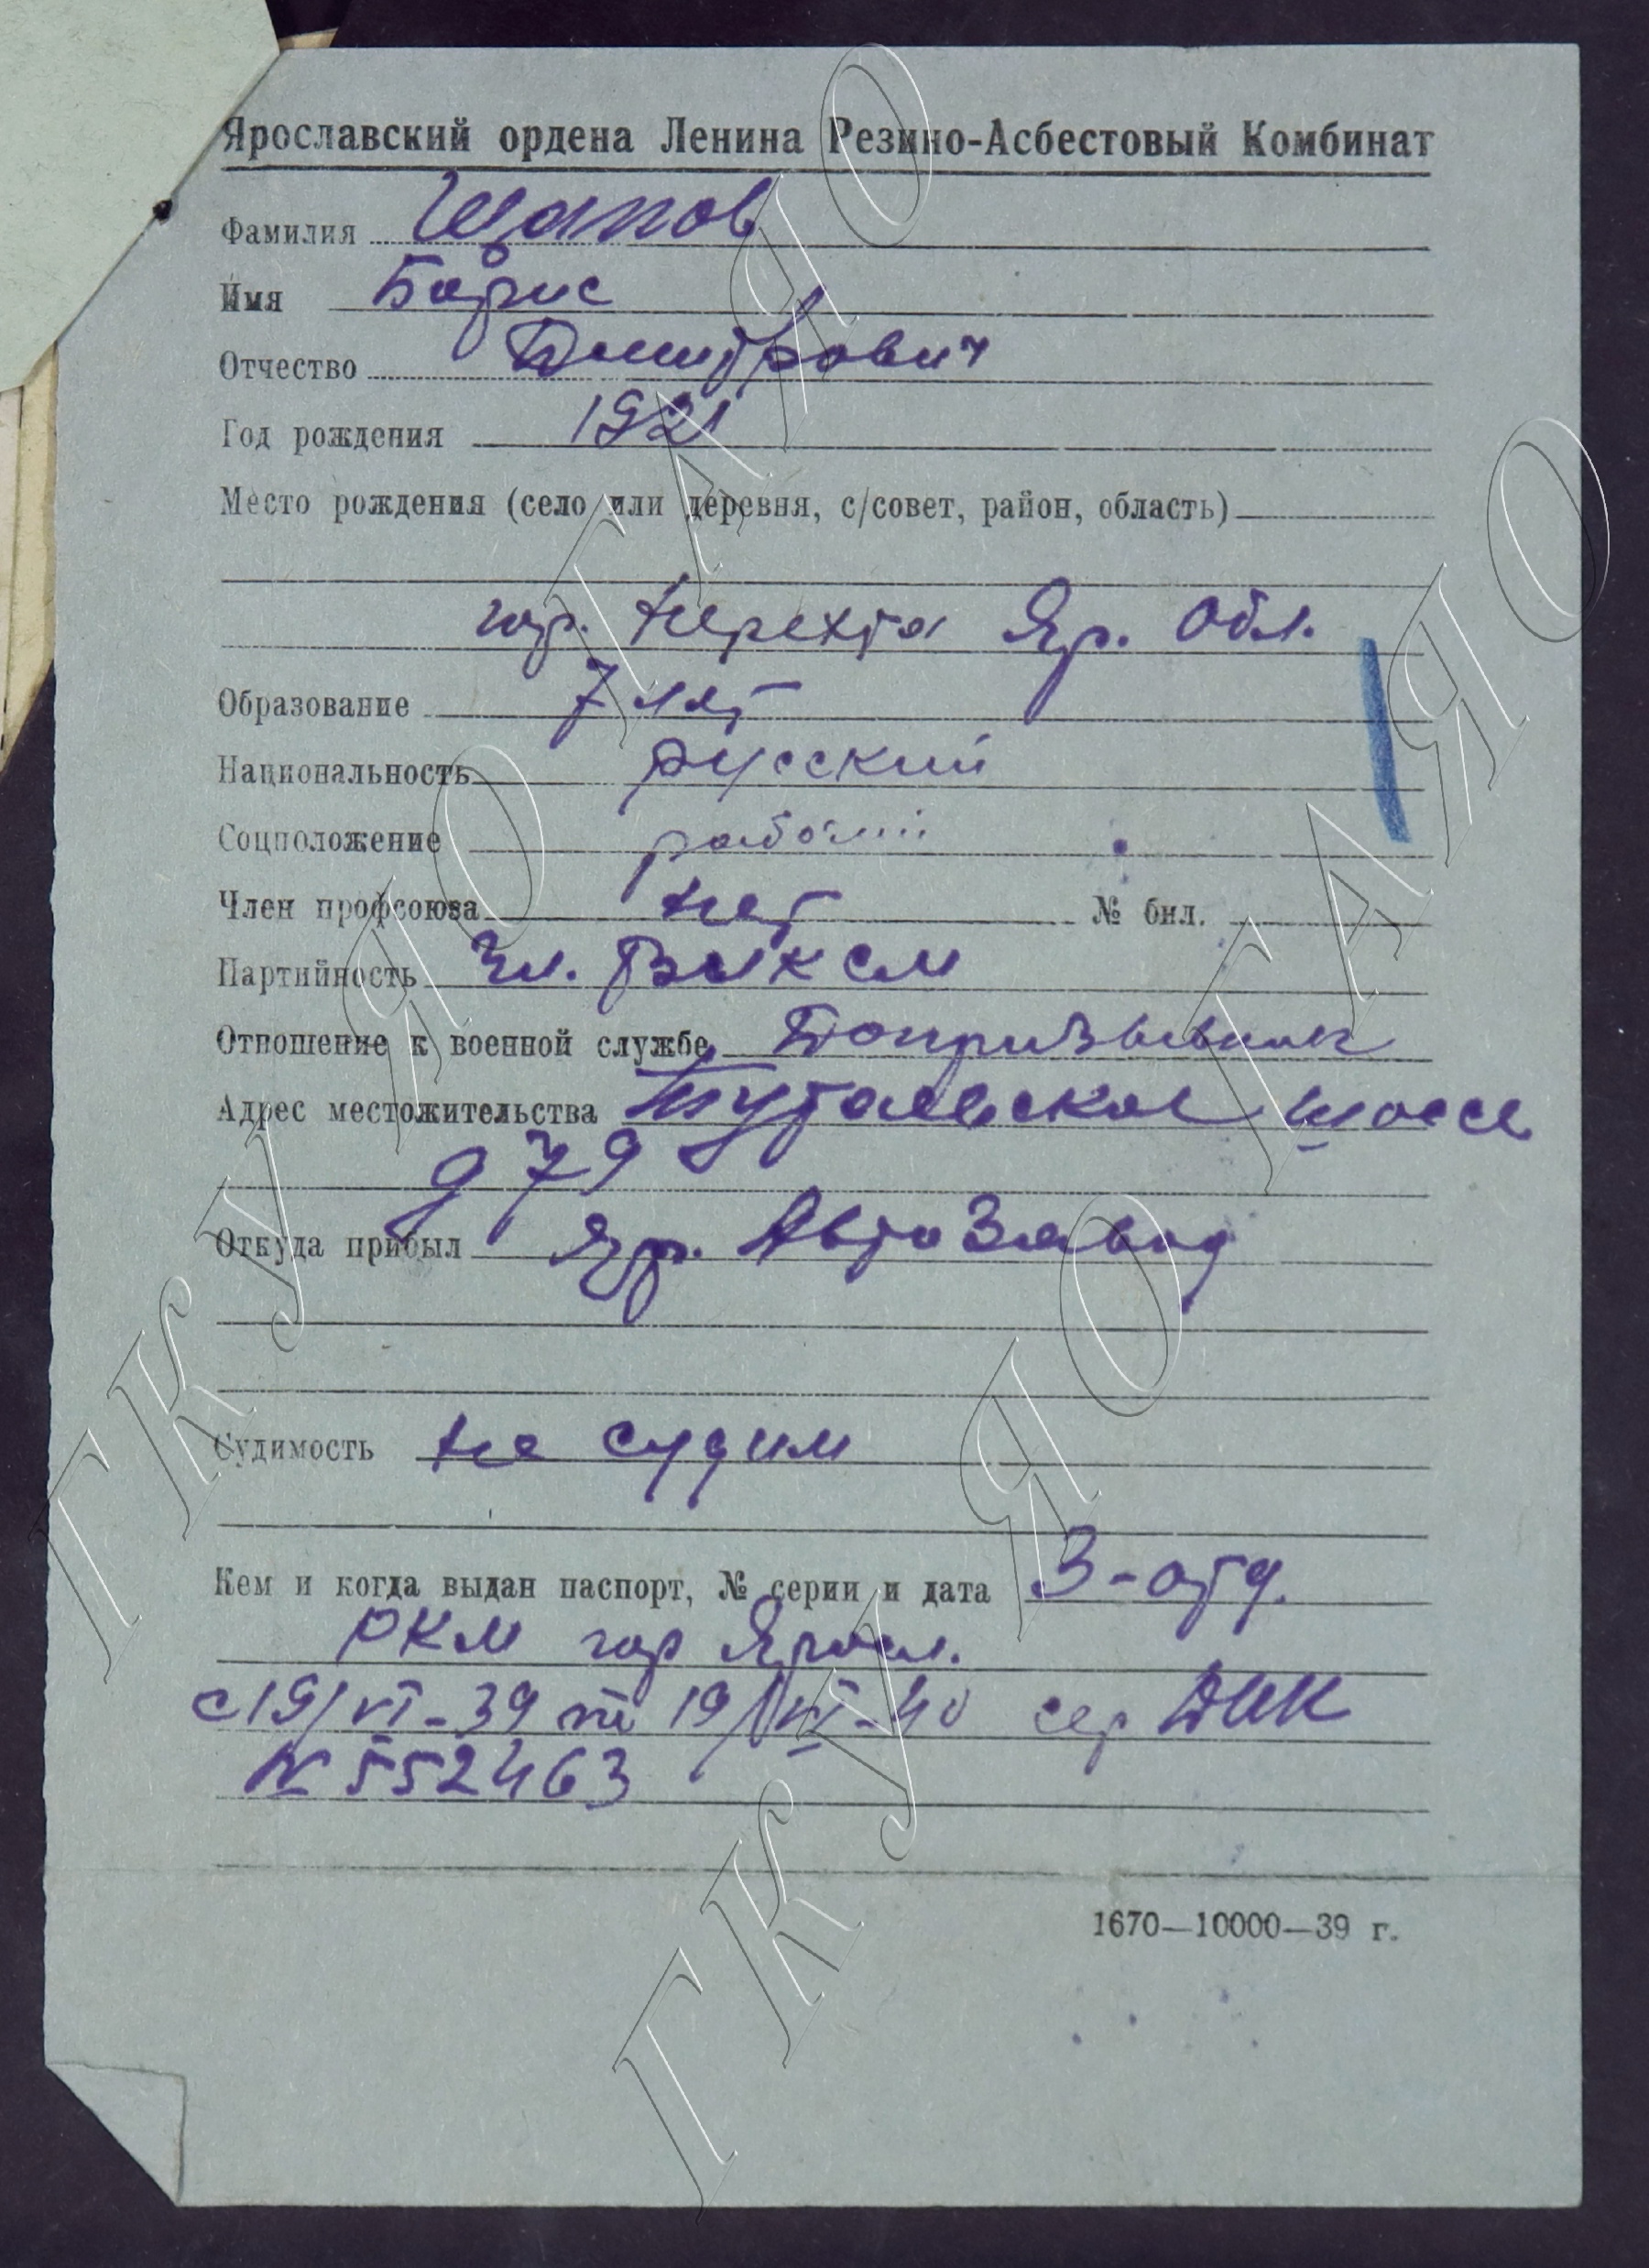 Ярославский ордена Ленина Резино-Асбестовый Комбинат
Фамилия Щапов
Имя Борис
Отчество Дмитрович
Год рождения 1921
Место рождения (село или деревня, с/совет, район, область)
гор. Нерехта Яр. Обл.
Образование 7 лет
Национальность русский
Соцположение рабочий
Член профсоюза нет № бил.
Партийность Чл. ВЛКСМ
Отношение к военной службе Допризывник
Адрес местожительства Тутаевское шоссе
д 79
Откуда прибыл Яр. АвтоЗавод
Судимость не судим
Кем и когда выдан паспорт, № серии и дата 3-отд.
РКМ гор Яросл.
с 19/VI-39 по 19/VI-40 сер
№ 552463
1670—10000—39 г.
ГКУ ЯО ГАЯО
ГКУ ЯО ГАЯО